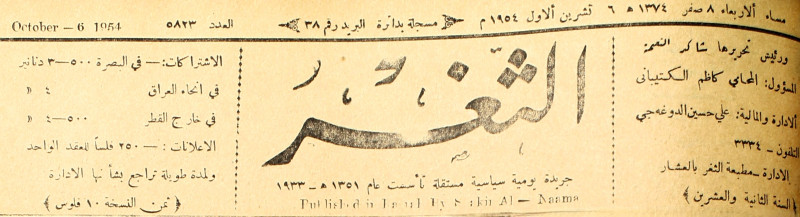 مساء الاربعاء ٨ صفر ١٣٧٤ هـ ٦ تشرين الاول ١٩٥٤ م
مسجلة بدائرة البريد رقم ٣٨
العدد ٥٨٢٣
October - 6 1954
ورئيس تحريرها شاكر النعمة
المسؤول: المحامي كاظم الكتيباني
الادارة والمالية: علي حسين الدوغه جي
التلفون - ٣٣٣٤
الادارة - مطبعة الثغر بالعشار
﴿ السنة الثانية والعشرين ﴾
الثغر
جريدة يومية سياسية مستقلة تأسست عام ١٣٥١ هـ - ١٩٣٣
Published in By Shakir Al - Naama
الاشتراكات: - في البصرة ٥٠٠-٣ دنانير
في انحاء العراق ٤ »
في خارج القطر ٥٠٠-٤ »
الاعلانات: - ٢٥٠ فلساً للعقد الواحد
ولمدة طويلة تراجع بشأنها الادارة
﴿ ثمن النسخة ١٠ فلوس ﴾